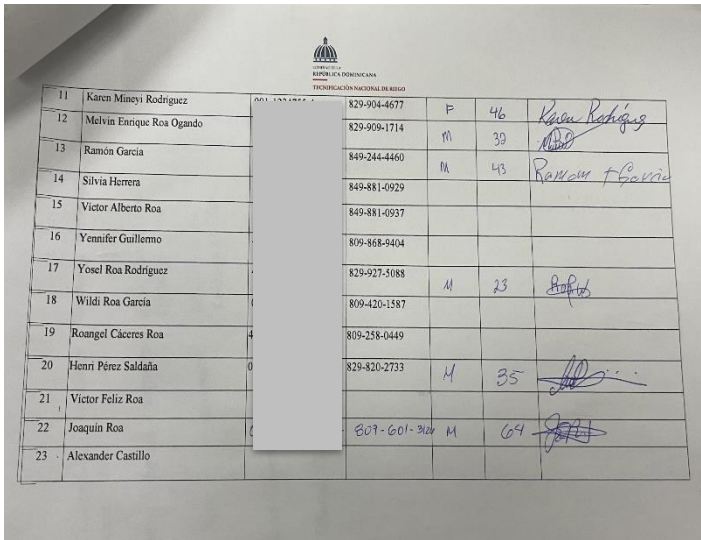 GOBIERNO DE LA
REPÚBLICA DOMINICANA
TECNIFICACIÓN NACIONAL DE RIEGO
11 Karen Mineyi Rodriguez 829-904-4677 F 46 Karen Rodríguez
12 Melvin Enrique Roa Ogando 829-909-1714 M 32
13 Ramón García 849-244-4460 M 43 Ramon García
14 Silvia Herrera 849-881-0929
15 Victor Alberto Roa 849-881-0937
16 Yennifer Guillermo 809-868-9404
17 Yosel Roa Rodríguez 829-927-5088 M 23
18 Wildi Roa García 809-420-1587
19 Roangel Cáceres Roa 4 809-258-0449
20 Henri Pérez Saldaña 0 829-820-2733 M 35
21 Victor Feliz Roa
22 Joaquín Roa 809-601-3126 M 64
23 Alexander Castillo